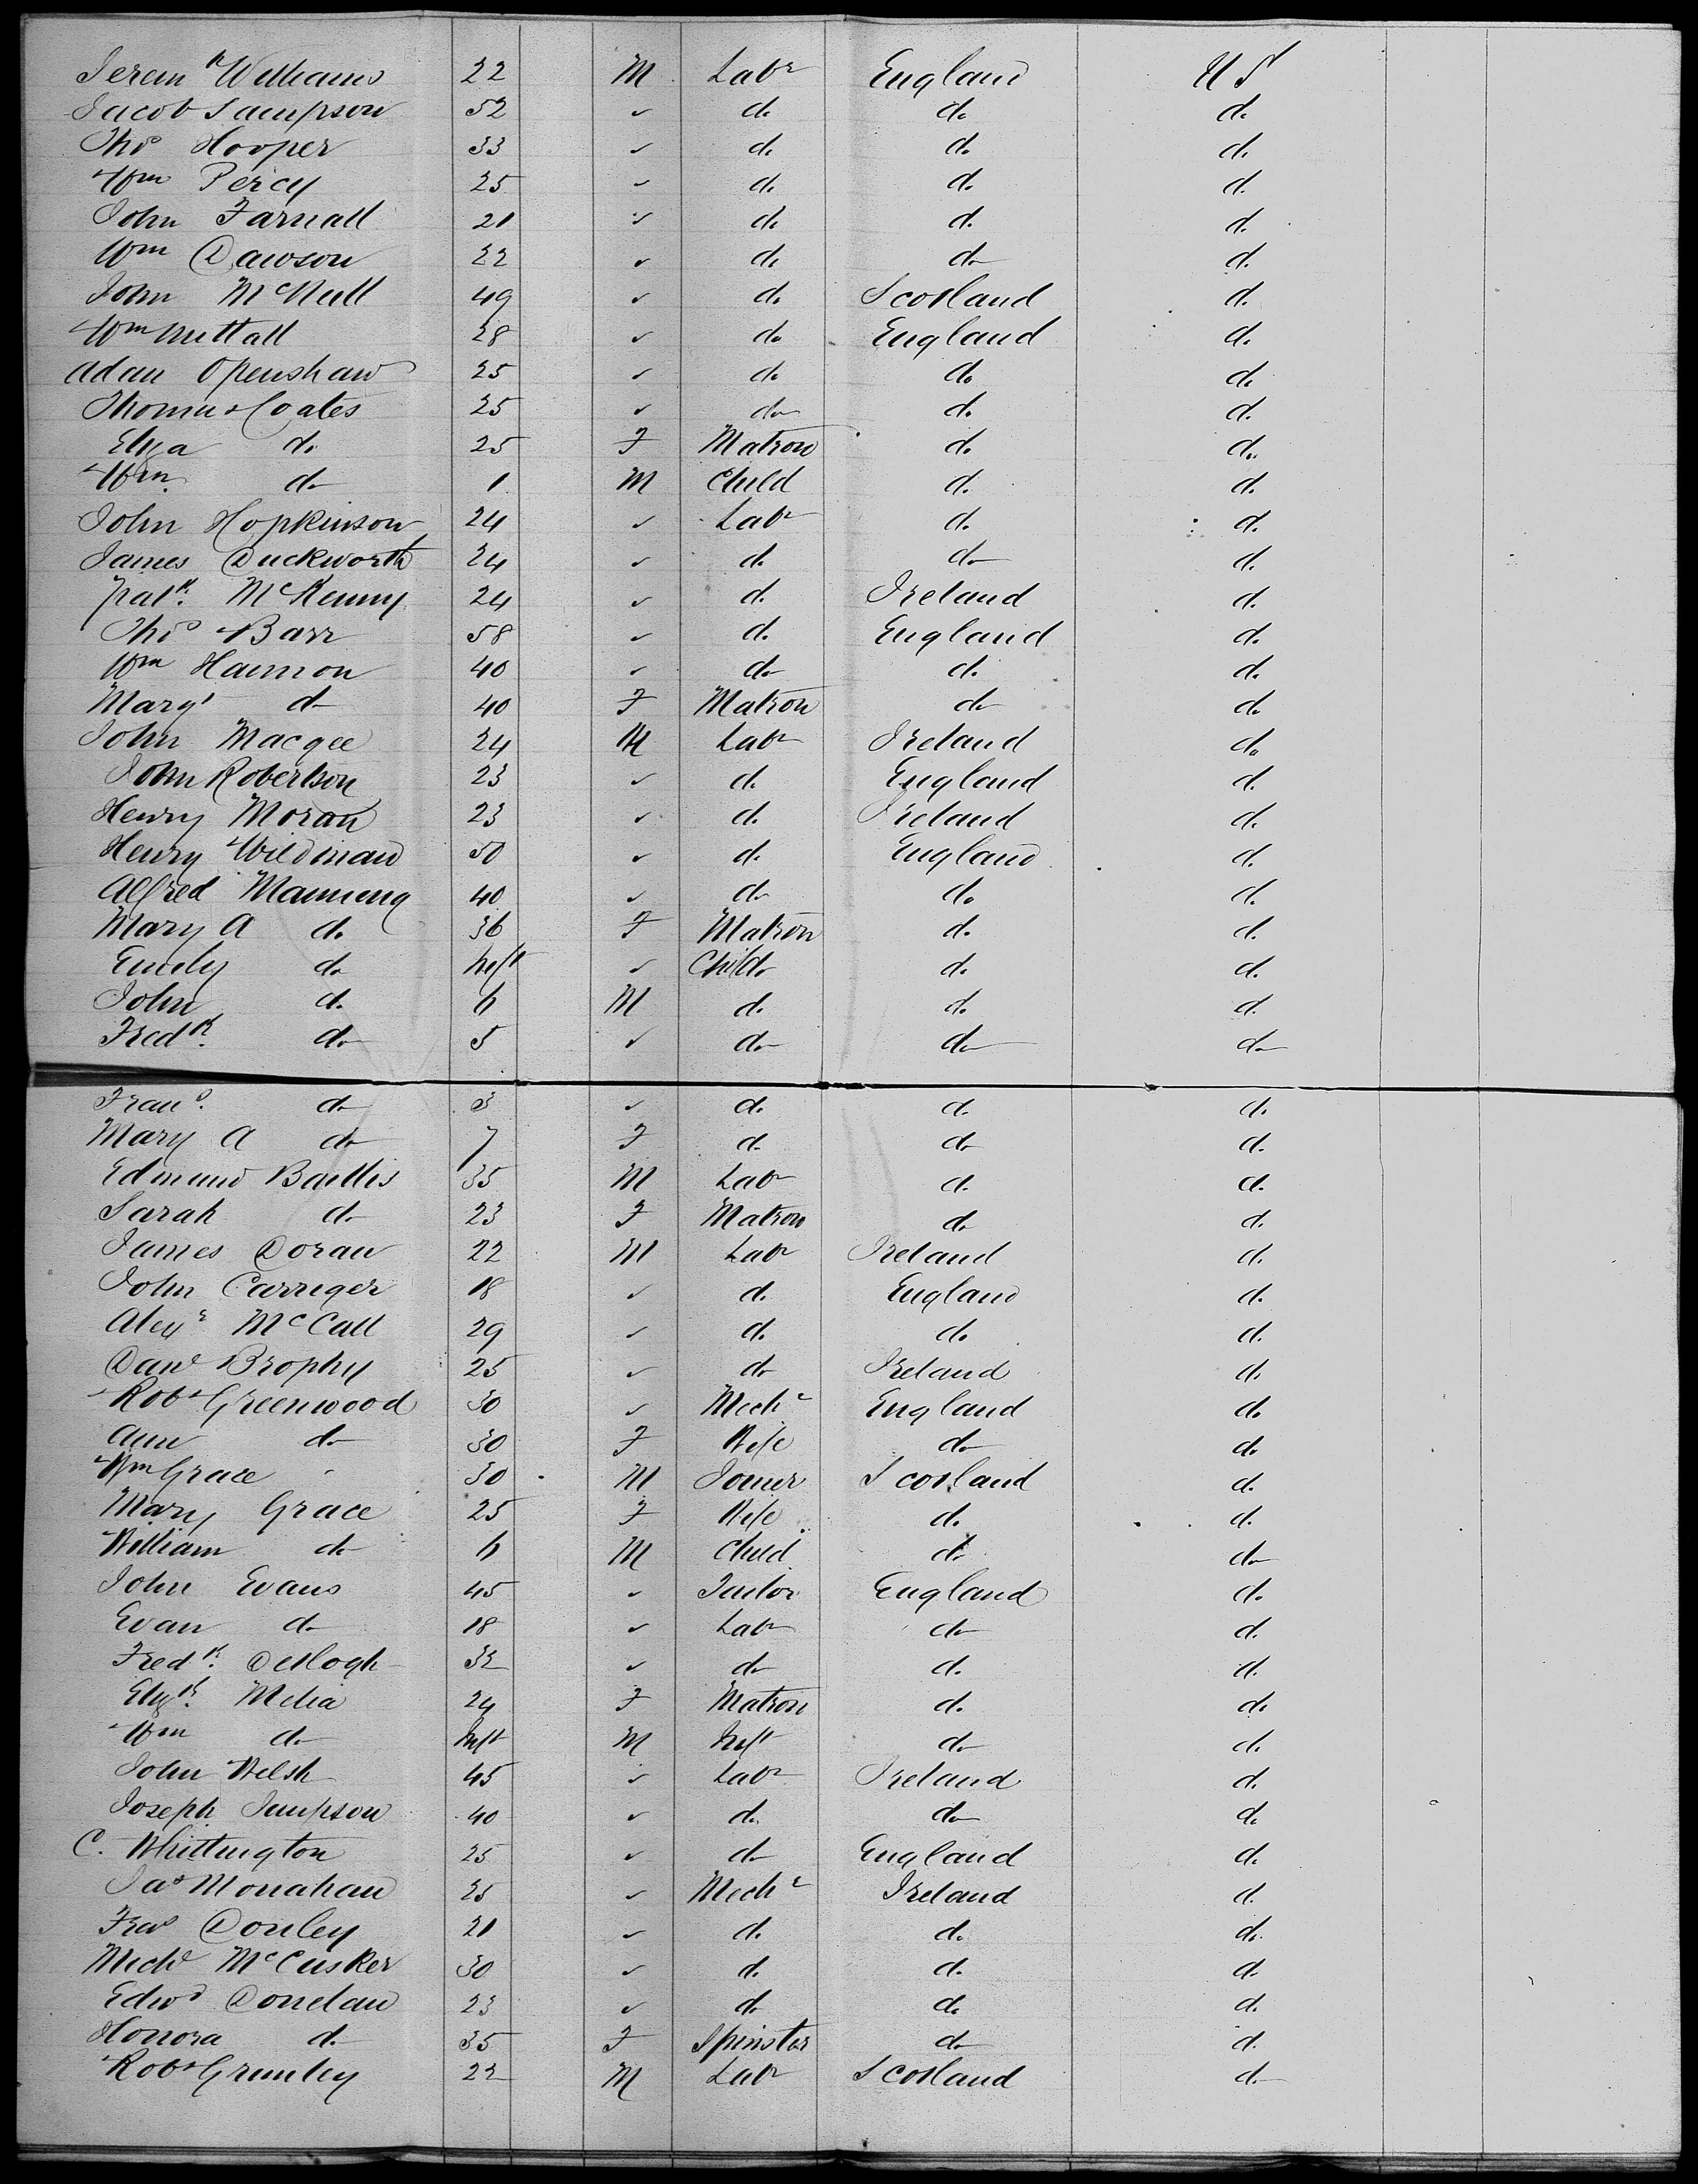 Jerem^h Williams 22 M Lab^r England U S
Jacob Sampson 52 " d. d. d.
Tho^s Hooper 33 " d. d. d.
Wm Percy 25 " d. d. d.
John Farnall 21 " d. d. d.
Wm Dawson 22 " d. do d.
John McNull 49 " d. Scotland d.
Wm Nuttall 28 " do England d.
Adam Openshaw 25 " d. do d.
Thomas Coates 25 " do d. d.
Eliza d. 25 F Matron d. d.
Wm. do 1 M Child d. d.
John Hopkinson 24 " Lab^r d. d.
James Duckworth 24 " d. do d.
Pat^k. McKenny 24 " d. Ireland d.
Tho^s Barr 58 " d. England d.
Wm Hamon 40 " do d. d.
Marg^t do 40 F Matron do d.
John Macgee 24 M Lab^r Ireland do
John Robertson 23 " d. England d.
Henry Moran 23 " d. Ireland d.
Henry Wildman 50 " d. England d.
Alfred Manning 40 " do do d.
Mary A d. 36 F Matron d. d.
Emily do Inft " Child d. d.
John d. 6 M d. d. d.
Fred^k. do 5 " do do do
Fran^s. do 3 " d. d. d.
Mary A do 7 F d. do d.
Edmund Baillis 35 M Lab^r d. d.
Sarah do 23 F Matron do d.
James Doran 22 M Lab^r Ireland d.
John Carriger 18 " d. England d.
Alex^r McCall 29 " d. do d.
Dan^l Brophy 25 " do Ireland d.
Rob^t Greenwood 30 " Mech^c England do
Ann do 30 F Wife do do
Wm Grace 30 M Joiner Scotland d.
Mary Grace 25 F Wife d. d.
William do 6 M Child do do
John Evans 45 " Tailor England d.
Evan do 18 " Lab^r do d.
Fred^k. 32 " do d. d.
Eliz^h. Melia 24 F Matron d. d.
Wm do Inft M Inft do d.
John Welsh 45 " Lab^r Ireland d.
Joseph Simpson 40 " d. do d.
C. Whittington 25 " do England d.
Ja^s Monahan 25 " Mech^c Ireland d.
Fra^s Donley 21 " d. d. d.
Mich^l McCusker 30 " d. d. d.
Edw^d Donelan 23 " do d. d.
Honora d. 35 F Spinster do d.
Rob^t Grumley 22 M Lab^r Scotland do